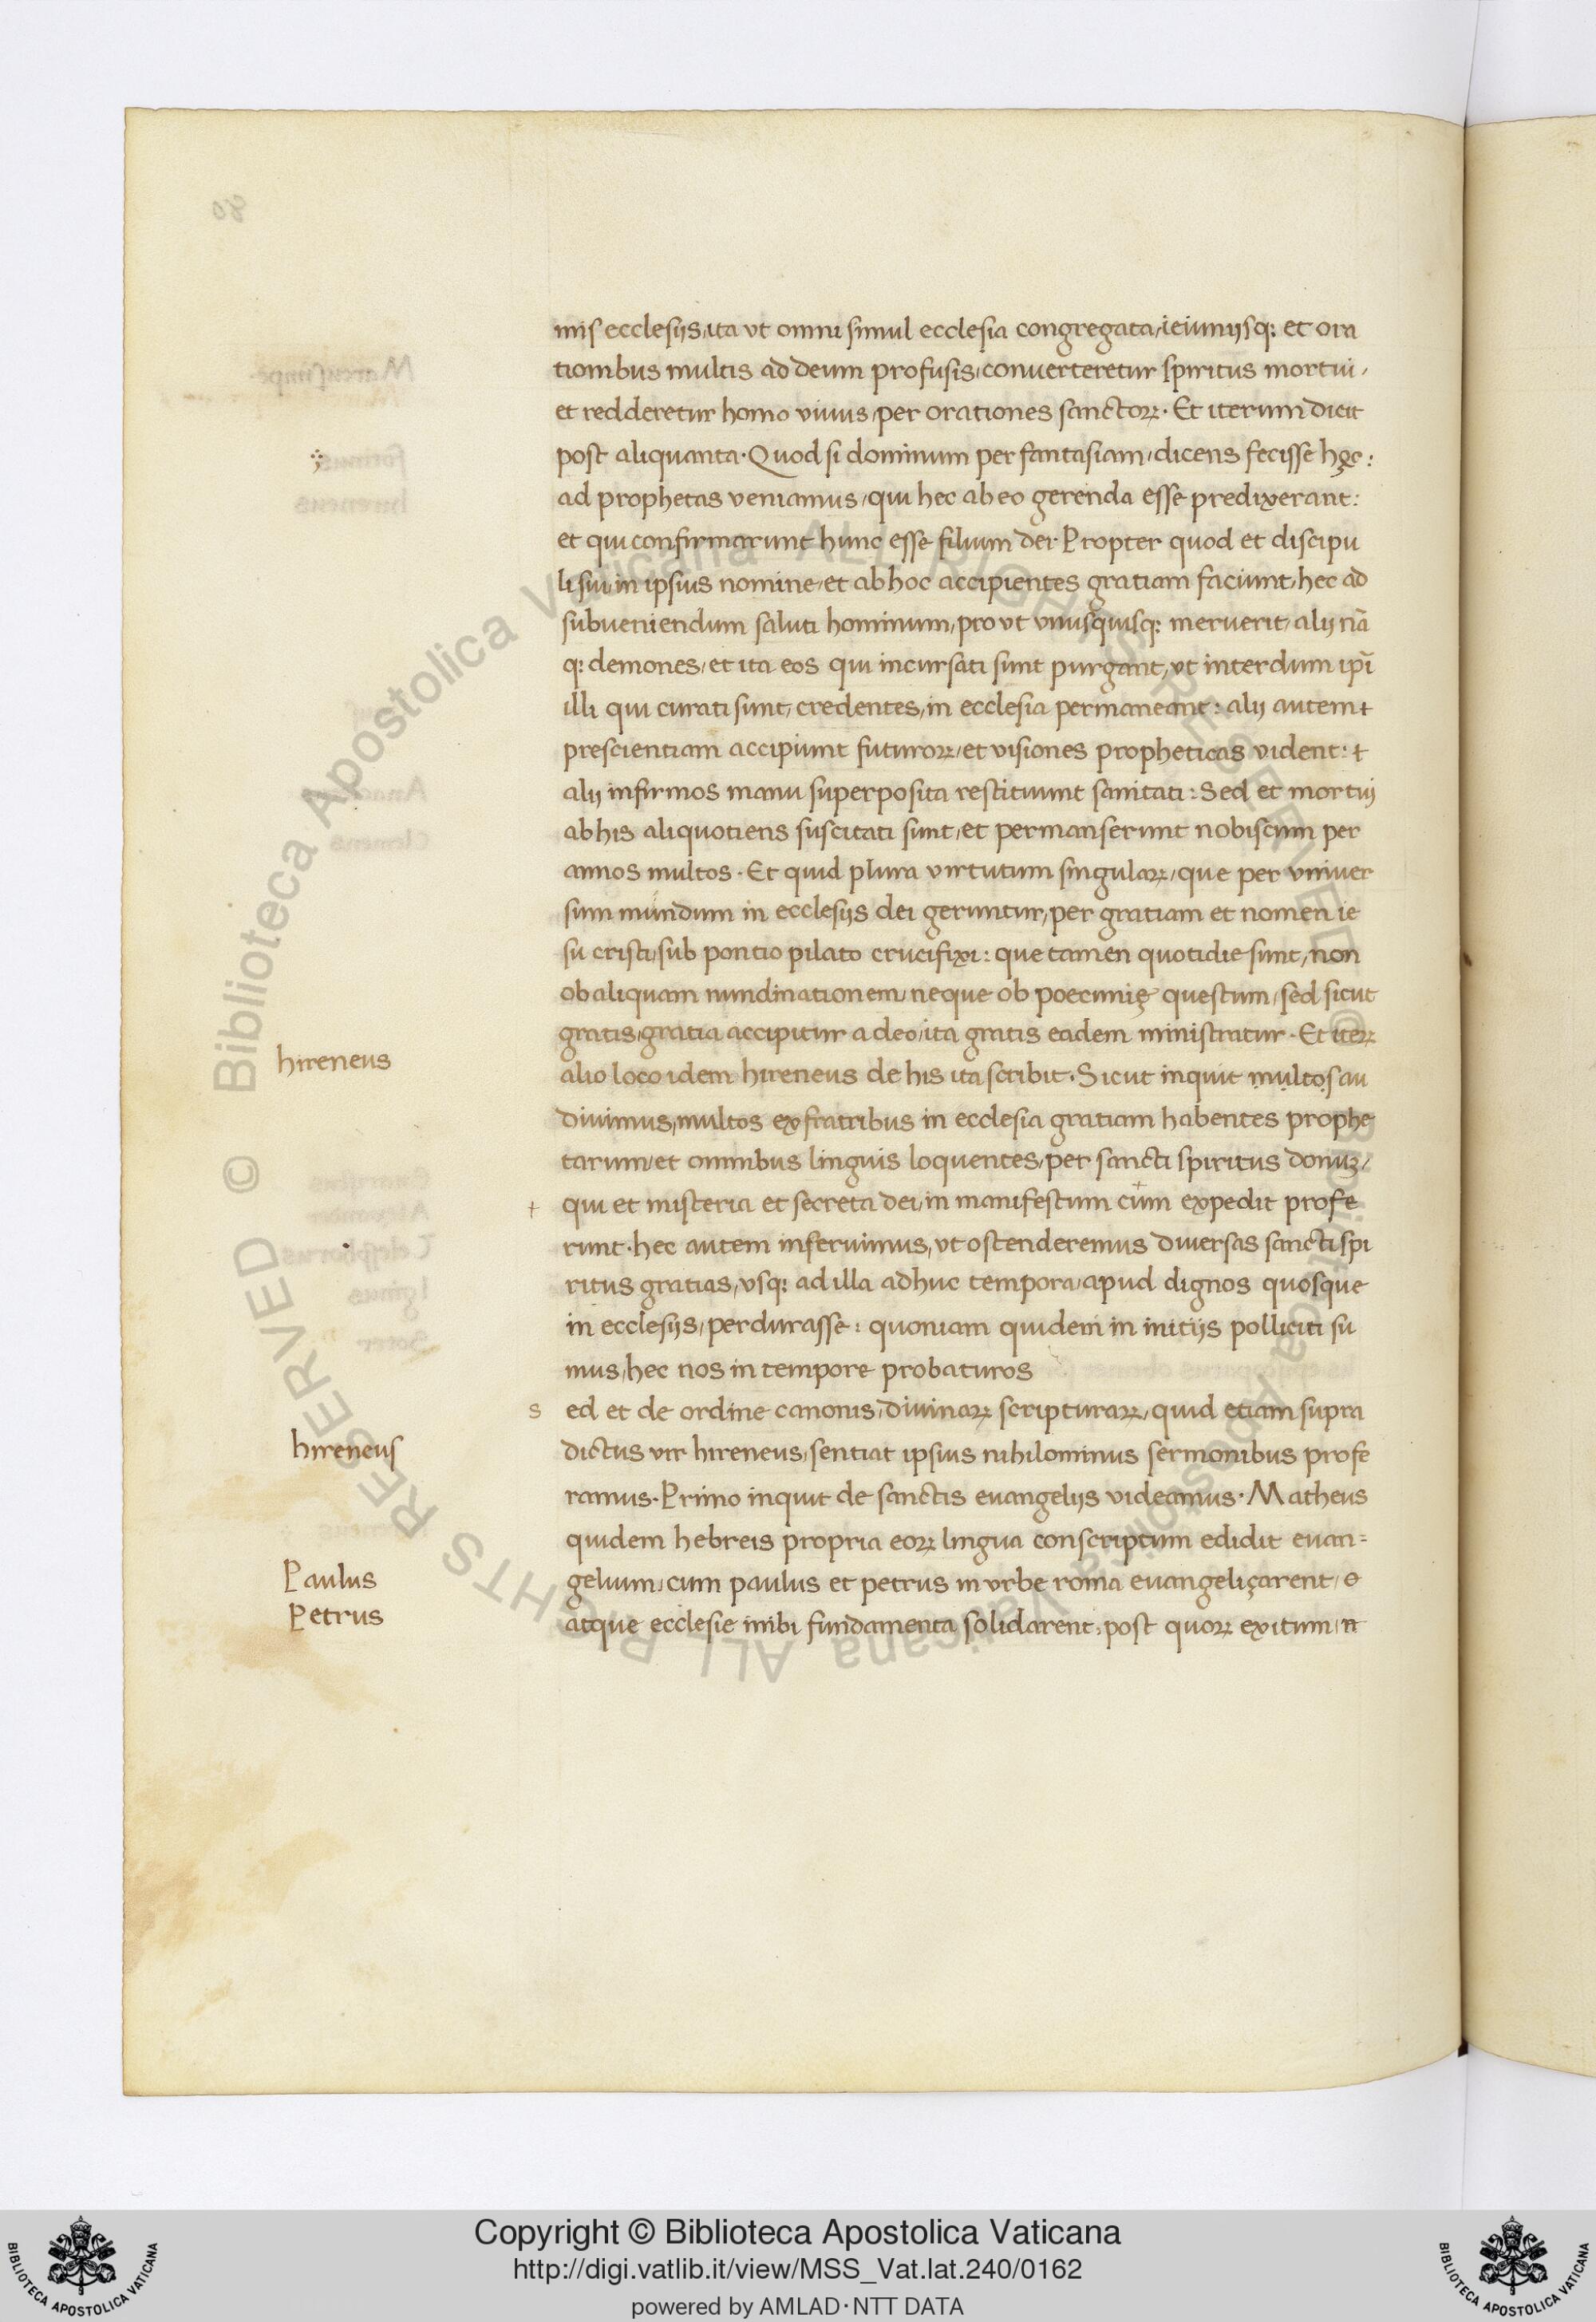 mis ecclesijs, ita vt omni simul ecclesia congregata, ieiunijsq; et ora
tionibus multis ad deum profusis, conuerteretur spiritus mortui,
et redderetur homo viuus, per orationes sanctoꝝ. Et iterum dicit
post aliquanta. Quod si dominum per fantasiam, dicens fecisse hęc:
ad prophetas veniamus, qui hec ab eo gerenda esse predixerant:
et qui confirmarunt hunc esse filium dei. Propter quod et discipu
li sui, in ipsius nomine, et ab hoc accipientes gratiam faciunt, hec ad
subueniendum saluti hominum, pro vt vnusquisq; meruerit, alij nā
q; demones, et ita eos qui incursati sunt purgant, vt interdum ip̄i
illi qui curati sunt, credentes, in ecclesia permaneant: alij autem +
prescientiam accipiunt futuroꝝ, et visiones propheticas vident: +
alij infirmos manu superposita restituunt sanitati: Sed et mortuj
ab his aliquotiens suscitati sunt, et permanserunt nobiscum per
annos multos. Et quid plura virtutum singulaꝝ, que per vniuer
sum mundum in ecclesijs dei geruntur, per gratiam et nomen ie
su cristi, sub pontio pilato crucifixi: que tamen quotidie sunt, non
ob aliquam nundinationem, neque ob poecunię questum, sed sicut
gratis, gratia accipitur a deo, ita gratis eadem ministratur. Et iteꝝ
hireneus
alio loco idem hireneus de his ita scribit. Sicut inquit multos au
diuimus, multos ex fratribus in ecclesia gratiam habentes prophe
tarum, et omnibus linguis loquentes, per sancti spiritus donuꝫ,
+ qui et misteria et secreta dei, in manifestum cum expedit profe
runt. hec autem inseruimus, vt ostenderemus diuersas sancti spi
ritus gratias, vsq; ad illa adhuc tempora, apud dignos quosque
in ecclesijs, perdurasse: quoniam quidem in initijs polliciti su
mus, hec nos in tempore probaturos
s ed et de ordine canonis, diuinaꝝ scripturaꝝ, quid etiam supra
hireneus
dictus vir hireneus, sentiat ipsius nihilominus sermonibus profe
ramus. Primo inquit de sanctis euangelijs videamus. Matheus
quidem hebreis propria eoꝝ lingua conscriptum edidit euan=
Paulus
gelium, cum paulus et petrus in vrbe roma euangeliçarent, e
Petrus
atque ecclesie inibi fundamenta solidarent, post quoꝝ exitum, n
Copyright © Biblioteca Apostolica Vaticana
http://digi.vatlib.it/view/MSS_Vat.lat.240/0162
powered by AMLAD·NTT DATA
BIBLIOTECA APOSTOLICA VATICANA
BIBLIOTECA APOSTOLICA VATICANA
© Biblioteca Apostolica Vaticana ALL RIGHTS RESERVED
© Biblioteca Apostolica Vaticana ALL RIGHTS RESERVED